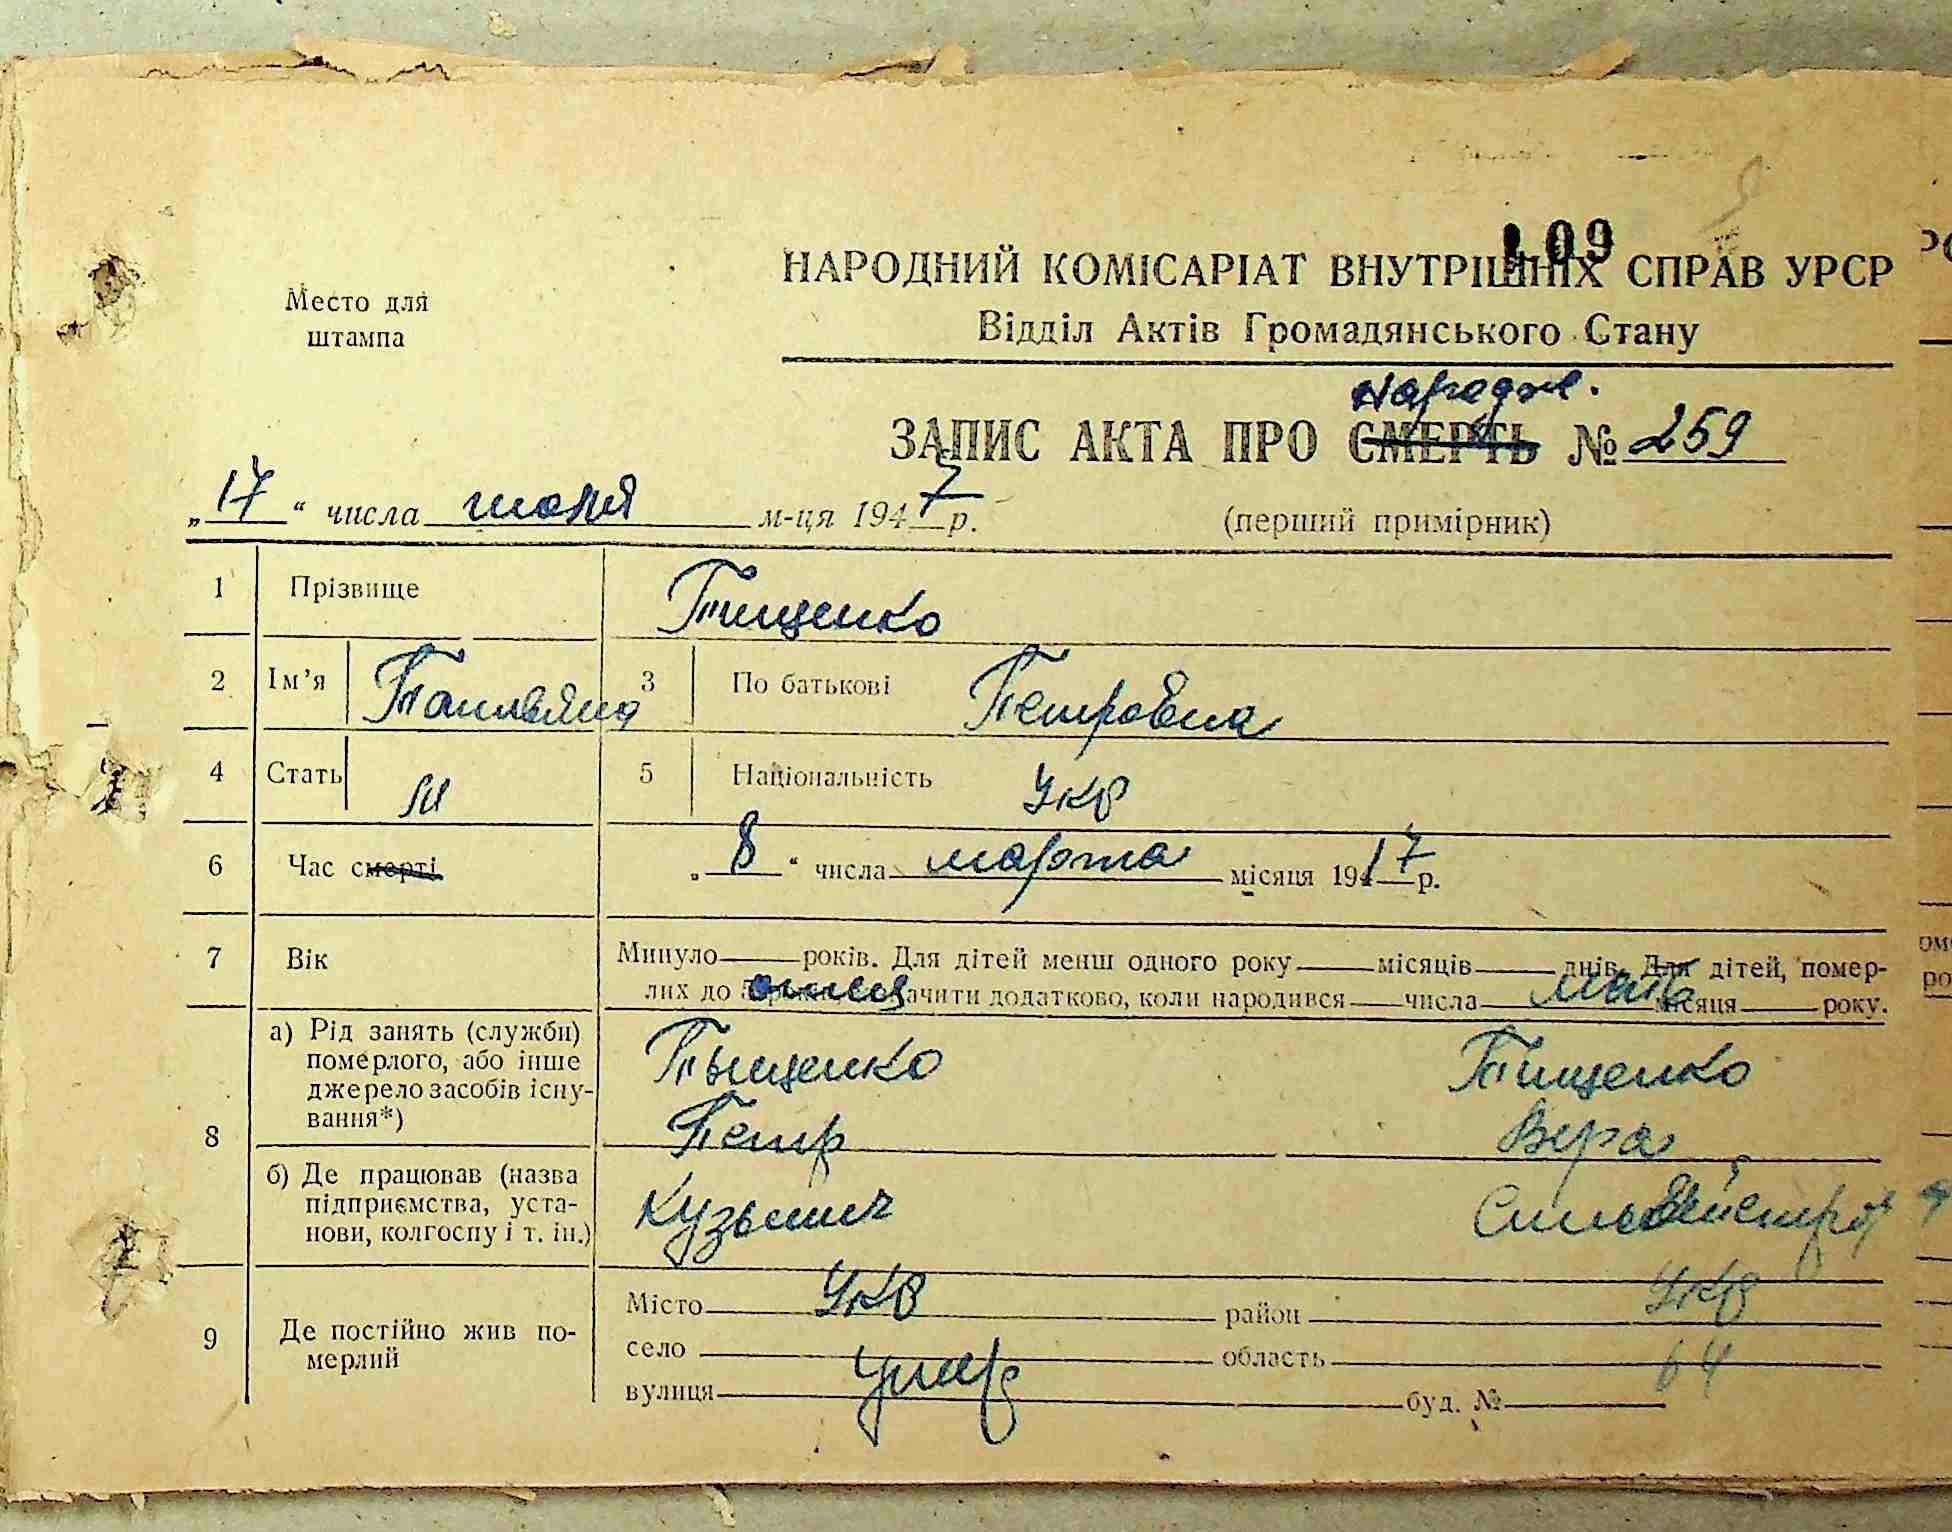 109
НАРОДНИЙ КОМІСАРІАТ ВНУТРІШНІХ СПРАВ УРСР
Место для штампа
Відділ Актів Громадянського Стану
нарадж.
ЗАПИС АКТА ПРО СМЕРТЬ № 259
„17“ числа июля м-ця 1947 р. (перший примірник)
1 Прізвище Тищенко
2 Ім’я Татьяна 3 По батькові Петровна
4 Стать 5 Національність Укр
6 Час смерті „8“ числа марта місяця 1917 р.
7 Вік Минуло років. Для дітей менш одного року місяців днів. Для дітей, помер-
лих до 5 ачити додатково, коли народився числа місяця року.
отец мать
8 а) Рід занять (служби) померлого, або інше джерело засобів існу-вання*) Тыщенко Тищенко
Петр Вера
б) Де працював (назва підприємства, уста-нови, колгоспу і т. ін.) Кузьмич
9 Де постійно жив по-мерлий
Місто Укр район Укр
село область 64
вулиця умер буд. №